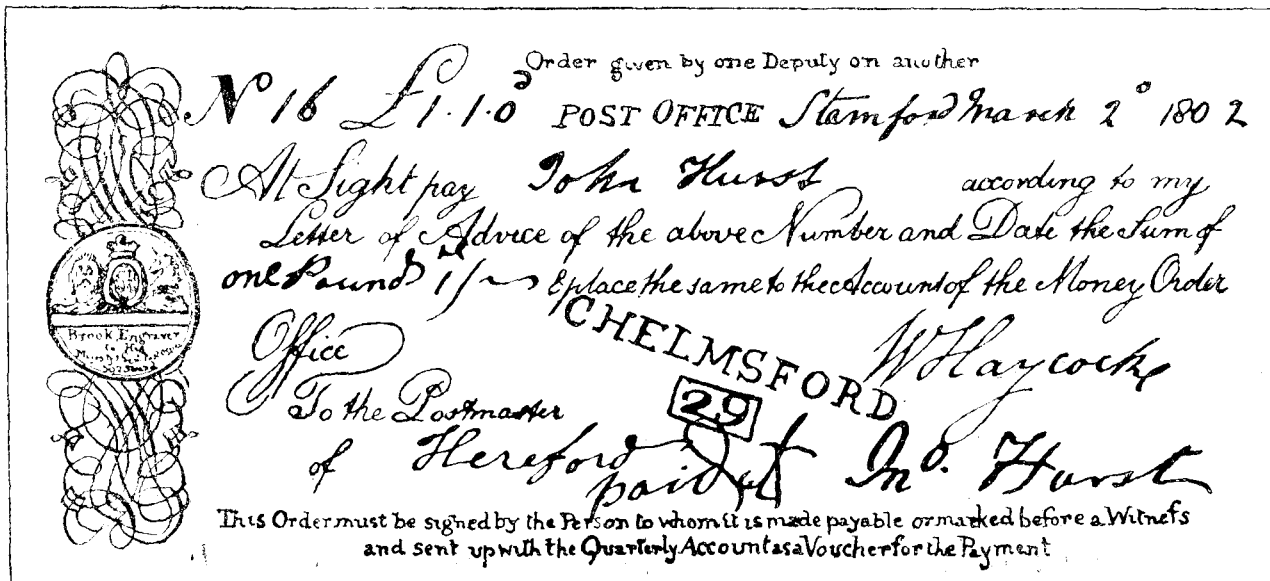 Order given by one Deputy on another
No 16 £1.1.0d POST OFFICE Stamford March 2d 1802
At Sight pay John Hurst according to my
Letter of Advice of the above Number and Date the Sum of
one Pound 1/~ & place the same to the Account of the Money Order
Office
W Haycock
CHELMSFORD
29
To the Postmaster
of Hereford
paid
Jno. Hurst
This Order must be signed by the Person to whom it is made payable or marked before a Witness
and sent up with the Quarterly Account as a Voucher for the Payment
Brook, Engraver